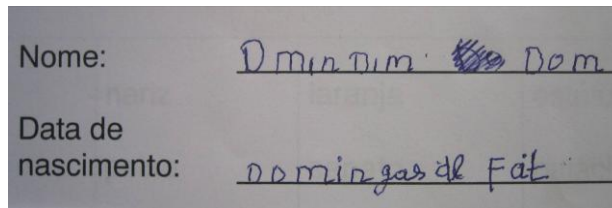 Nome: Dmin Dim Dom
Data de
nascimento: Domingas de Fát